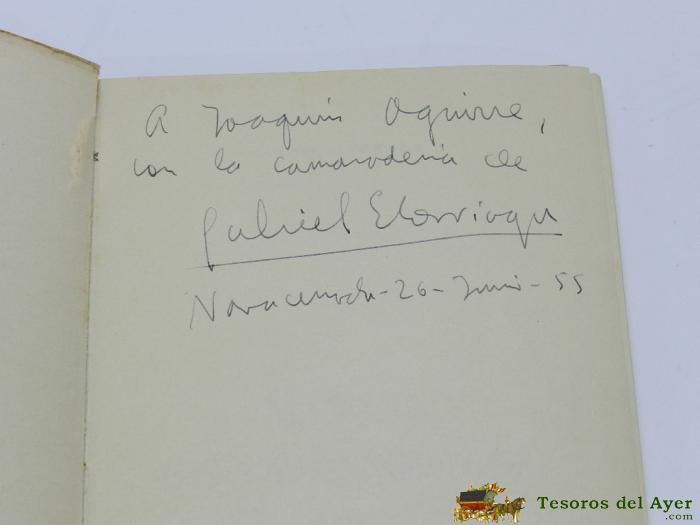 A Joaquín Aguirre,
con la camaradería de
Gabriel Elorriaga
Navacerrada-26-Junio-55
Tesoros del Ayer
.com